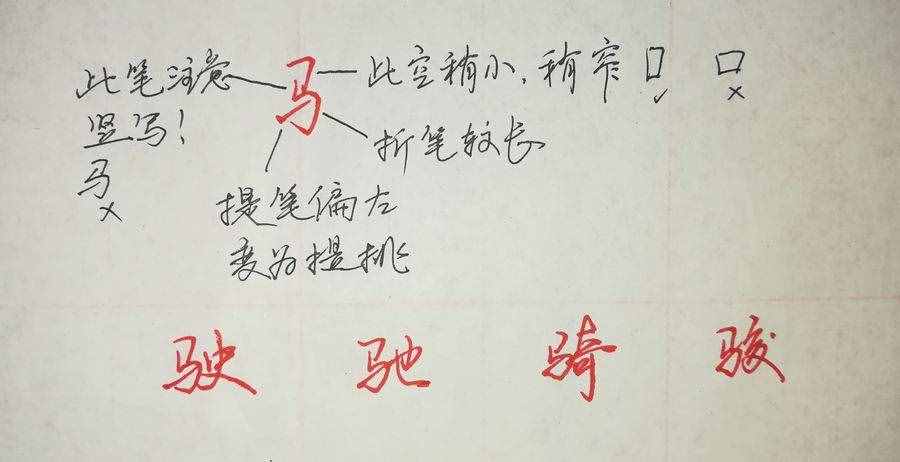 此笔注意
竖写！
马
×
马
此空稍小，稍窄 ✓ ×
折笔较长
提笔偏左
变为提挑
驶 驰 骑 骏